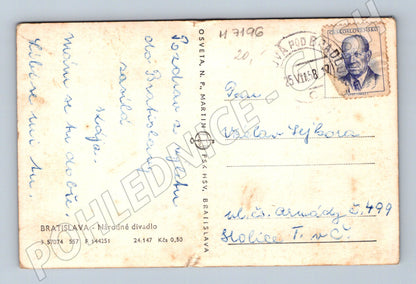 Pozdrav z výletu
do Bratislavy
zasílá
Mám se tu dobře.
Líbí se mi tu.
BRATISLAVA - Národné divadlo
S 57074 557 F 144251 24.147 Kčs 0,50
OSVETA, N. P., MARTIN
PSK HSV. BRATISLAVA
H 7196
20,
ČESKOSLOVENSKO
Pan
Václav Sýkora
ul. čs. armády č. 499
Holice T. v Č.
POHLEDNICE